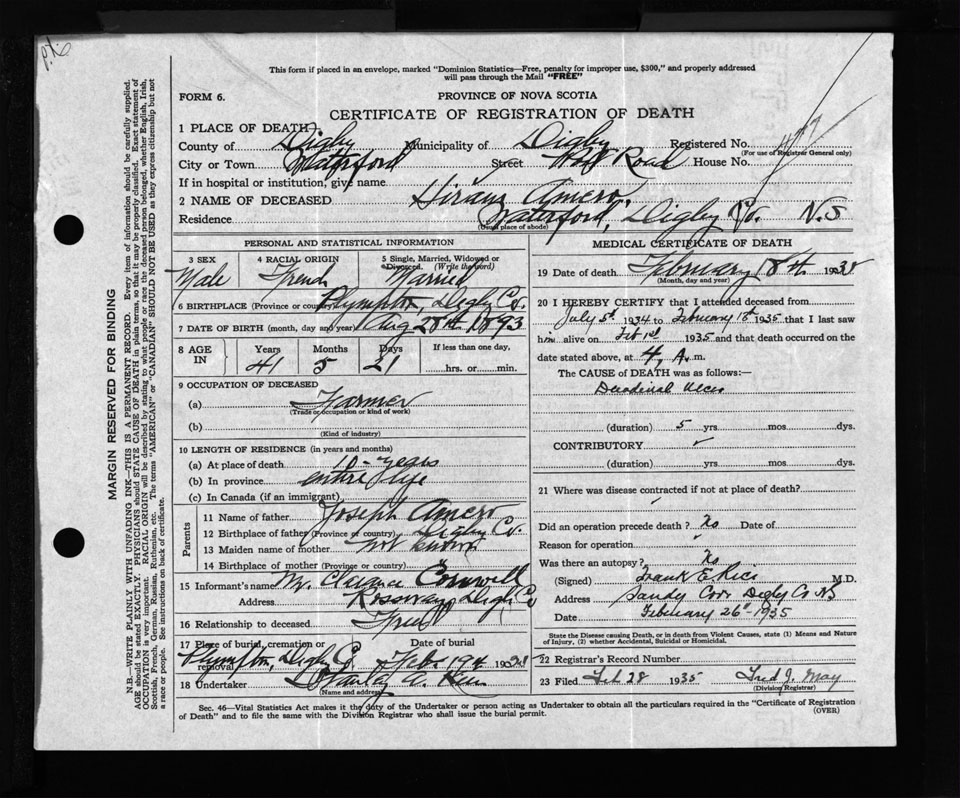 This form if placed in an envelope, marked "Dominion Statistics—Free, penalty for improper use, $300," and properly addressed
will pass through the Mail "FREE"
FORM 6.
PROVINCE OF NOVA SCOTIA
CERTIFICATE OF REGISTRATION OF DEATH
1 PLACE OF DEATH
County of Digby Municipality of Digby Registered No.
(For use of Registrar General only)
City or Town Waterford Street Road House No.
If in hospital or institution, give name
2 NAME OF DECEASED Hiram Amero
Residence Waterford, Digby Co. N.S
(Usual place of abode)
PERSONAL AND STATISTICAL INFORMATION
3 SEX Male
4 RACIAL ORIGIN French
5 Single, Married, Widowed or Divorced. (Write the word) Married
6 BIRTHPLACE (Province or country) Plympton, Digby Co.
7 DATE OF BIRTH (month, day and year) Aug 28th 1893
8 AGE IN Years 41 Months 5 Days 21 If less than one day, hrs. or min.
9 OCCUPATION OF DECEASED
(a) Farmer
(Trade or occupation or kind of work)
(b)
(Kind of industry)
10 LENGTH OF RESIDENCE (in years and months)
(a) At place of death 10 - years
(b) In province entire life
(c) In Canada (if an immigrant)
Parents
11 Name of father Joseph Amero
12 Birthplace of father (Province or country) Digby Co.
13 Maiden name of mother not known
14 Birthplace of mother (Province or country)
15 Informant's name Mr. Clarence Cornwell
Address Rossway Digby Co
16 Relationship to deceased Friend
17 Place of burial, cremation or removal Plympton, Digby Co. Date of burial Feb. 19th 193
18 Undertaker
(Name and address)
MEDICAL CERTIFICATE OF DEATH
19 Date of death February 18th 1935
(Month, day and year)
20 I HEREBY CERTIFY that I attended deceased from
July 5th 1934 to February 18th 1935 that I last saw
him alive on Feb 1st 1935 and that death occurred on the
date stated above, at 4 A. m.
The CAUSE of DEATH was as follows:—
Duodenal Ulcer
(duration) 5 yrs mos. dys.
CONTRIBUTORY
(duration) yrs mos. dys.
21 Where was disease contracted if not at death?
Did an operation precede death? No Date of
Reason for operation
Was there an autopsy? No
(Signed) Frank E Rice M.D.
Address Sandy Cove Digby Co NS
Date February 26th 1935
State the Disease causing Death, or in death from Violent Causes, state (1) Means and Nature
of Injury, (2) whether Accidental, Suicidal or Homicidal.
22 Registrar's Record Number
23 Filed Feb 28 1935 Fred J. May
(Division Registrar)
Sec. 46—Vital Statistics Act makes it the duty of the Undertaker or person acting as Undertaker to obtain all the particulars required in the "Certificate of Registration
of Death" and to file the same with the Division Registrar who shall issue the burial permit.
(OVER)
MARGIN RESERVED FOR BINDING
N.B.—WRITE PLAINLY WITH UNFADING INK—THIS IS A PERMANENT RECORD. Every item of information should be carefully supplied.
AGE should be stated EXACTLY. PHYSICIANS should STATE CAUSE OF DEATH in plain terms, so that it may be properly classified. Exact statement of
OCCUPATION is very important. RACIAL ORIGIN will be described by stating to what people or race the deceased person belonged, whether English, Irish,
Scottish, French, German, Russian, Ruthenian, etc. The terms "AMERICAN" or "CANADIAN" SHOULD NOT BE USED as they express citizenship but not
a race or people. See instructions on back of certificate.